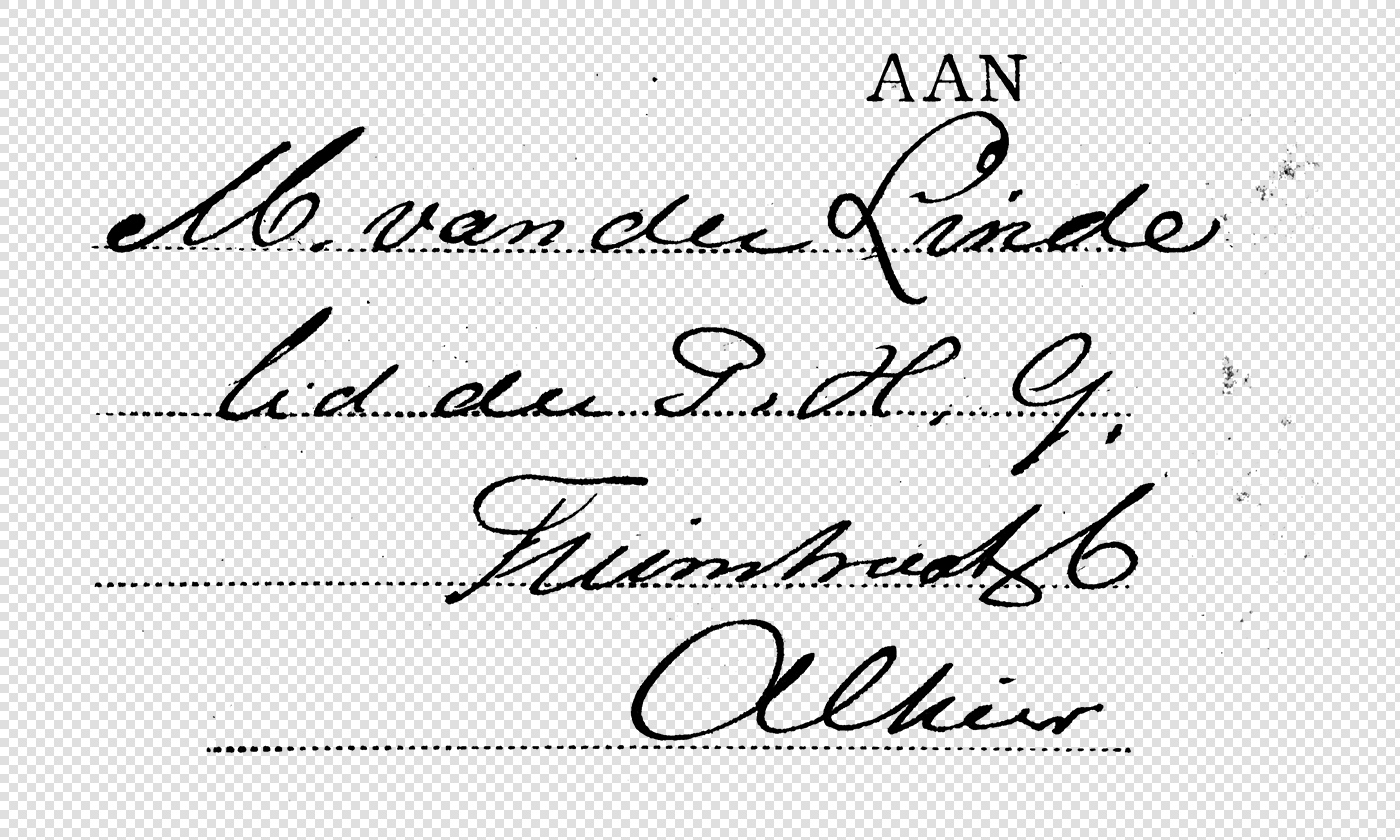 AAN
M. van der Linde
lid der P. H. G.
Tuinstraat 6
Alhier